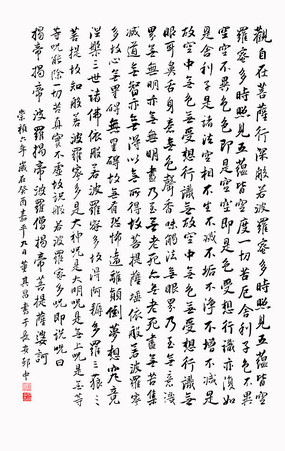 觀自在菩薩行深般若波羅蜜多時照見五蘊皆空
羅蜜多時照見五蘊皆空度一切苦厄舍利子色不異
空空不異色色即是空空即是色受想行識亦復如
是舍利子是諸法空相不生不滅不垢不淨不增不減是
故空中無色無受想行識無
眼耳鼻舌身意無色聲香味觸法無眼界乃至無意識
界無無明亦無無明盡乃至無老死亦無老死盡無苦集
滅道無智亦無得以無所得故菩提薩埵依般若波羅蜜
多故心無罣礙無罣礙故無有恐怖遠離顛倒夢想究竟
涅槃三世諸佛依般若波羅蜜多故得阿耨多羅三藐三
菩提故知般若波羅蜜多是大神咒是大明咒是無上咒是無等
等咒能除切苦真實不虛故說般若波羅蜜多咒即說咒曰
揭帝揭帝波羅揭帝波羅僧揭帝菩提薩婆訶
崇禎六年歲在癸酉九日董其昌書于長安邸中